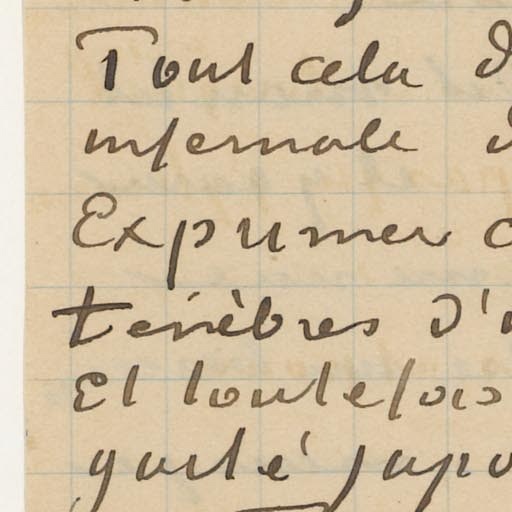 Tout cela d
infernale d
Exprimer c
ténèbres d'
Et toutefois
gaité japo